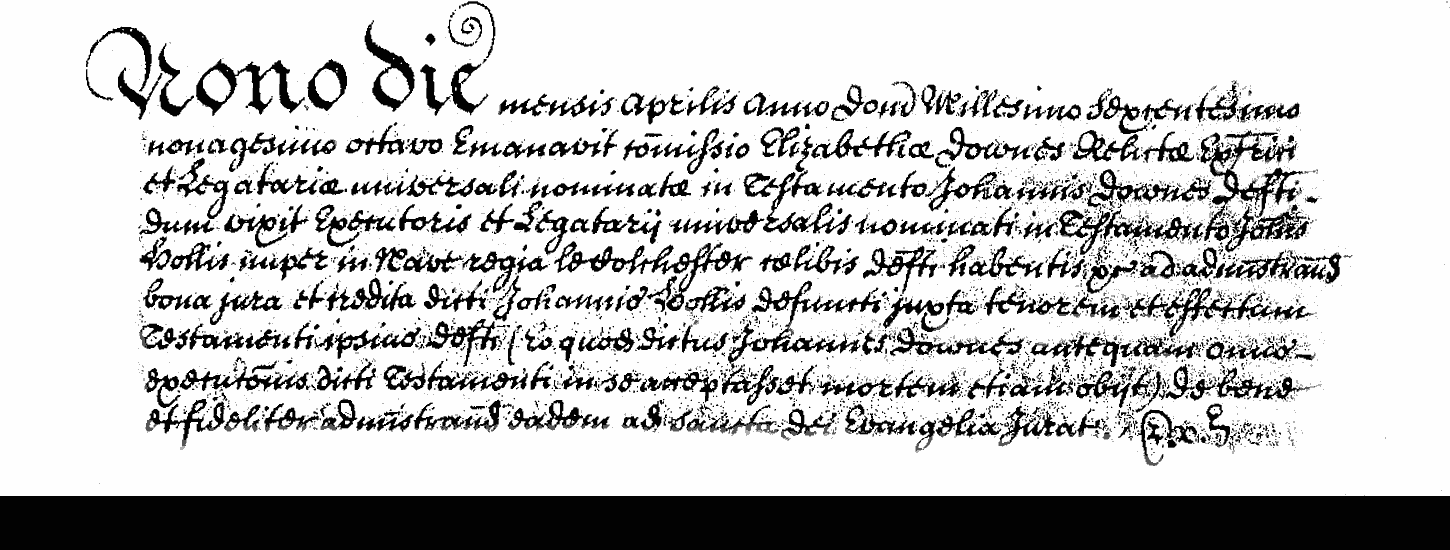 Nono die mensis Aprilis Anno Dom̄ Millesimo Sexcentesimo
nonagesimo octavo Emanavit com̄issio Elizabethæ Downes Relictæ
et Legatariæ universali nominatæ in Testamento Johannis Downes defti
dum vixit Executoris et Legatarij universalis nominati in Testamento Johīs
Hollis nuper in Nave regia le Colchester cælibis def̄ti habentis &c ad admīstrand
bona jura et credita dicti Johannis Hollis defuncti juxta tenorem et effectum
Testamenti ipsius def̄ti (Eo quod dictus Johannes Downes antequam onus
executōnis dicti Testamenti in se acceptasset mortem etiam obijt) de bene
et fideliter admīstrand eadem ad Sancta Dei Evangelia Jurat.